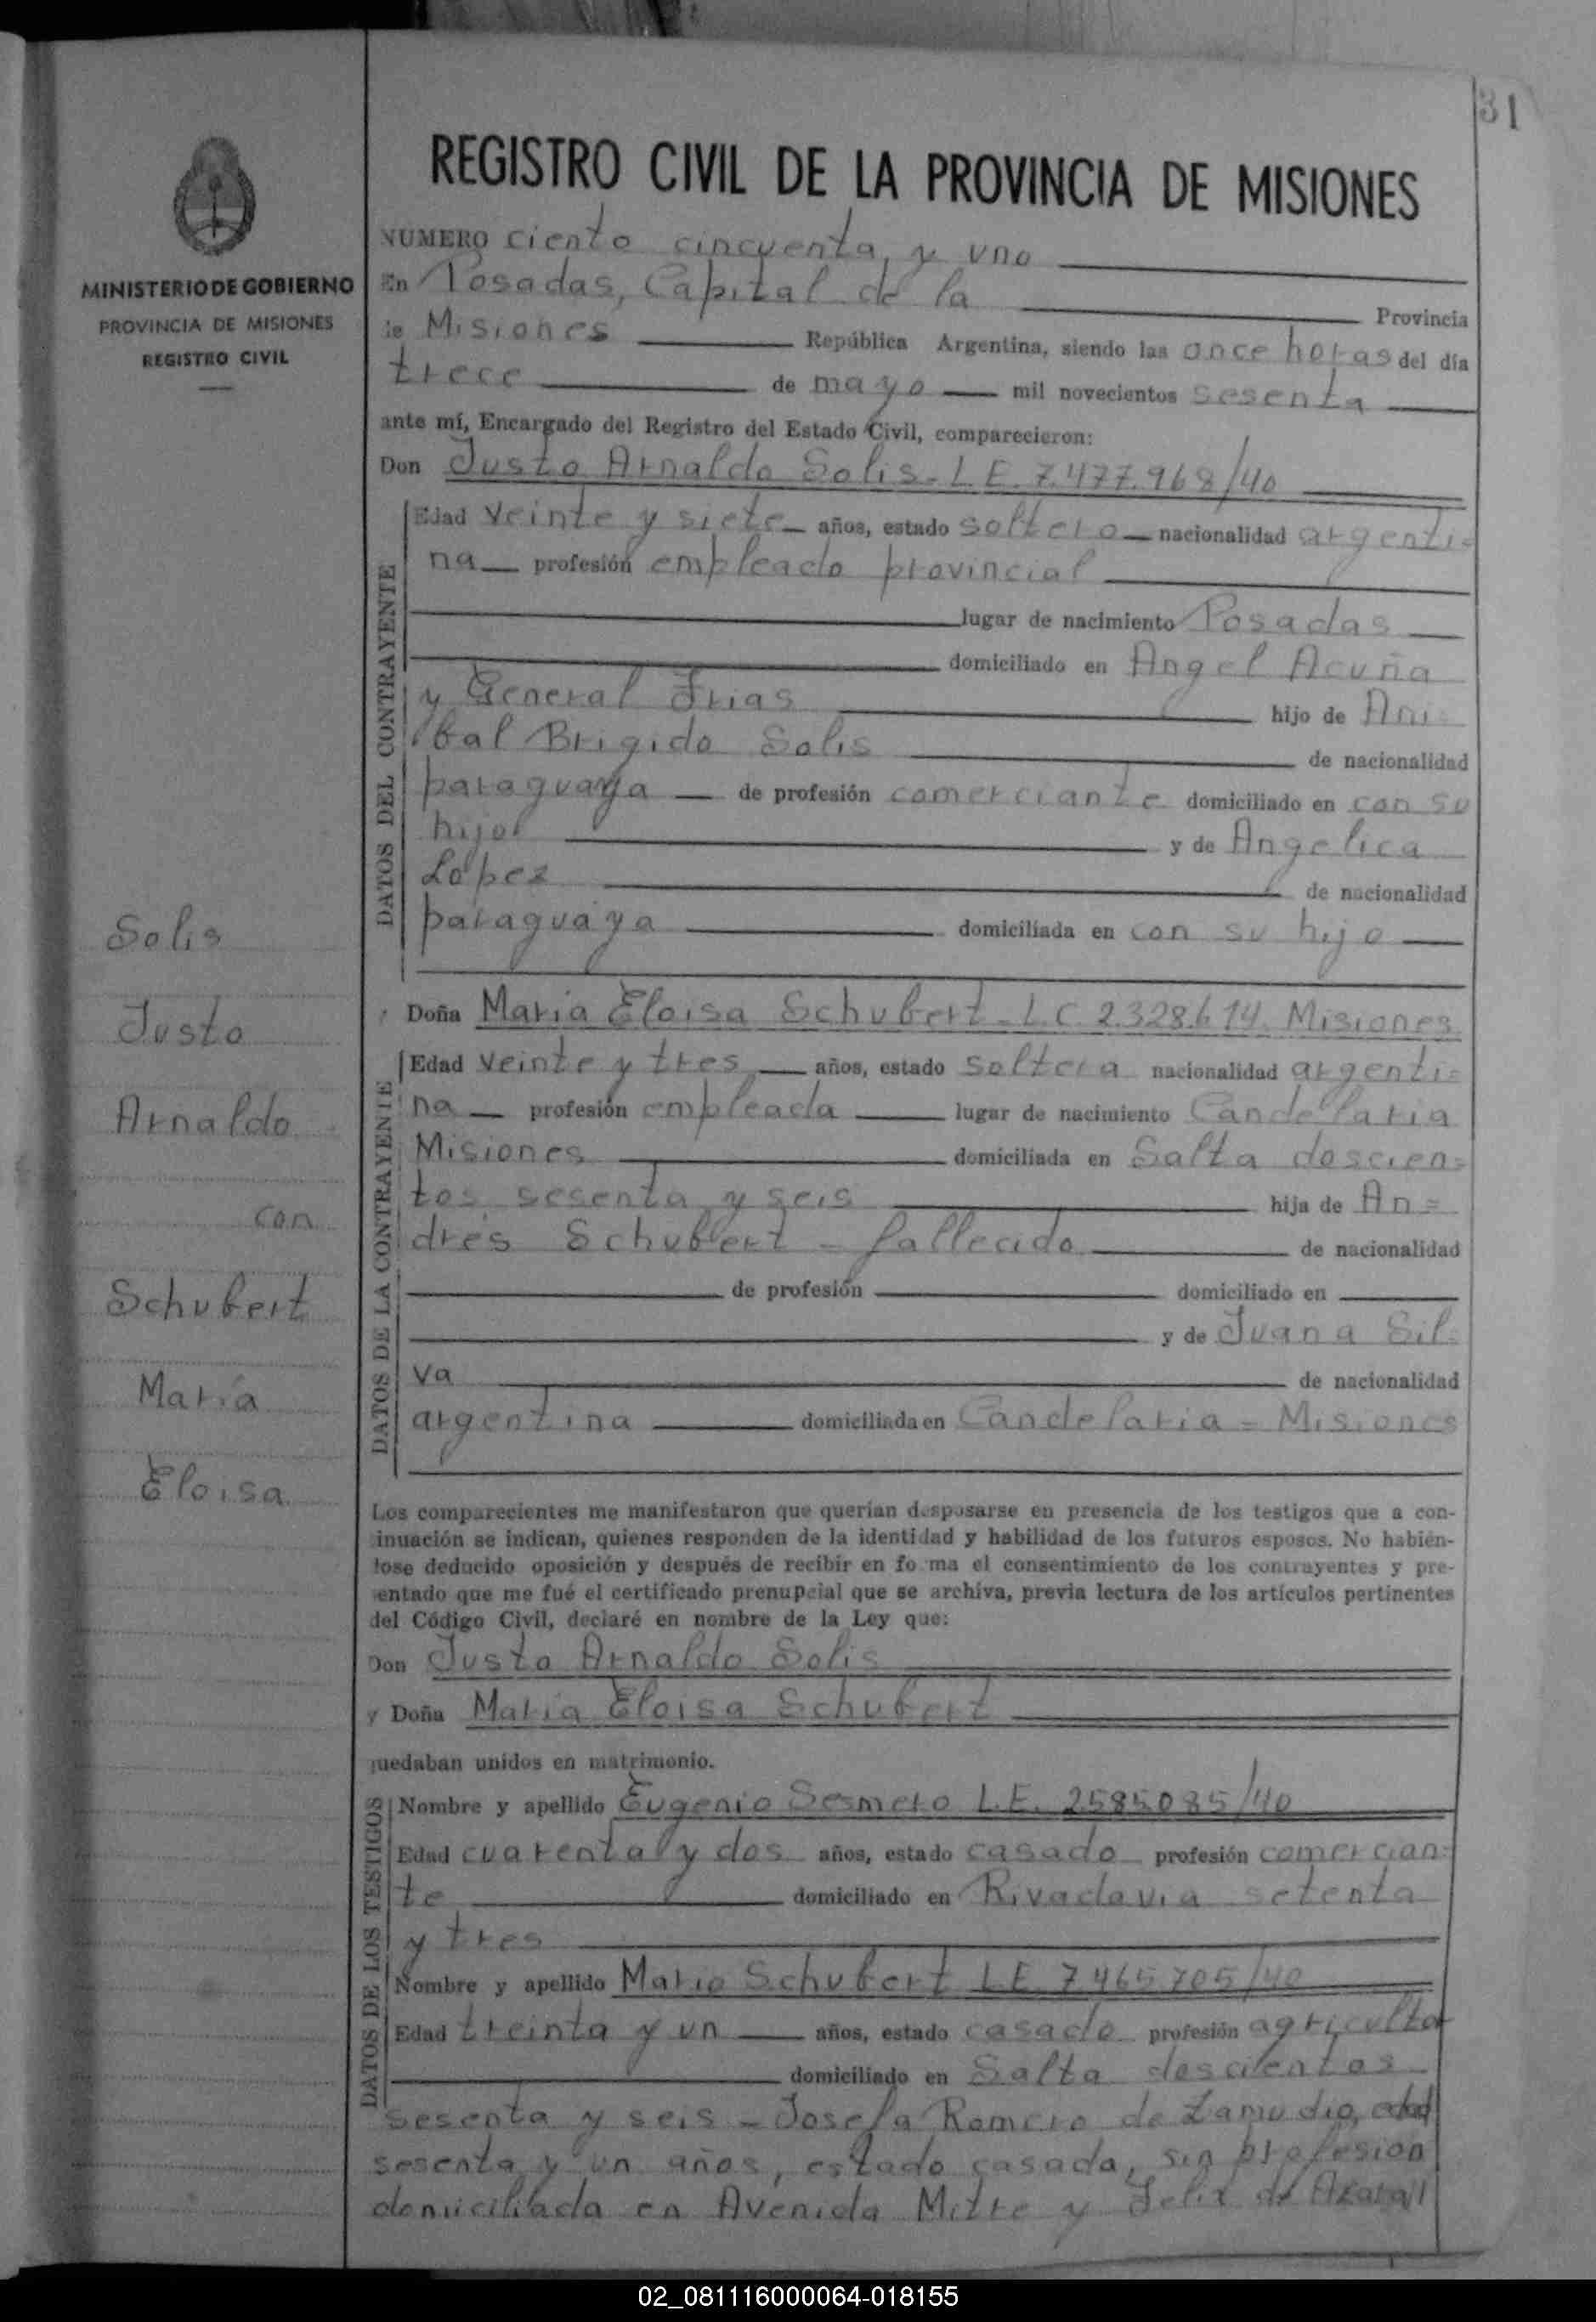 31
REGISTRO CIVIL DE LA PROVINCIA DE MISIONES
MINISTERIO DE GOBIERNO
PROVINCIA DE MISIONES
REGISTRO CIVIL
NUMERO ciento cincuenta y uno
En Posadas, Capital de la Provincia
de Misiones República Argentina, siendo las once horas del día
trece de mayo mil novecientos sesenta
ante mí, Encargado del Registro del Estado Civil, comparecieron:
Don Justo Arnaldo Solis - L E. 7.477.968/40
DATOS DEL CONTRAYENTE
Edad veinte y siete años, estado soltero nacionalidad argenti=
na profesión empleado provincial
lugar de nacimiento Posadas
domiciliado en Angel Acuña
y General Frias hijo de Ani=
bal Brigido Solis de nacionalidad
paraguaya de profesión comerciante domiciliado en con su
hijo y de Angelica
López de nacionalidad
paraguaya domiciliada en con su hijo
Solis
Justo
Arnaldo
con
Schubert
María
Eloisa
y Doña Maria Eloisa Schubert - L.C. 2.328.614. Misiones
DATOS DE LA CONTRAYENTE
Edad veinte y tres años, estado soltera nacionalidad argenti=
na profesión empleada lugar de nacimiento Candelaria
Misiones domiciliada en Salta doscien=
tos sesenta y seis hija de An=
drés Schubert - fallecido de nacionalidad
de profesión domiciliado en
y de Juana Sil=
va de nacionalidad
argentina domiciliada en Candelaria = Misiones
Los comparecientes me manifestaron que querían desposarse en presencia de los testigos que a con-
inuación se indican, quienes responden de la identidad y habilidad de los futuros esposos. No habién-
lose deducido oposición y después de recibir en fo ma el consentimiento de los contrayentes y pre-
entado que me fué el certificado prenupcial que se archiva, previa lectura de los artículos pertinentes
del Código Civil, declaré en nombre de la Ley que:
Don Justo Arnaldo Solis
y Doña María Eloisa Schubert
quedaban unidos en matrimonio.
DATOS DE LOS TESTIGOS
Nombre y apellido Eugenio Sesmero L.E. 2585085/40
Edad cuarenta y dos años, estado casado profesión comercian=
te domiciliado en Rivadavia setenta
y tres
Nombre y apellido Mario Schubert L.E. 7465.705/40
Edad treinta y un años, estado casado profesión agricultor
domiciliado en Salta doscientos
sesenta y seis - Josefa Romero de Zamudio, edad
sesenta y un años, estado casada, sin profesión
domiciliada en Avenida Mitre y Felix de Azara
02_081116000064-018155